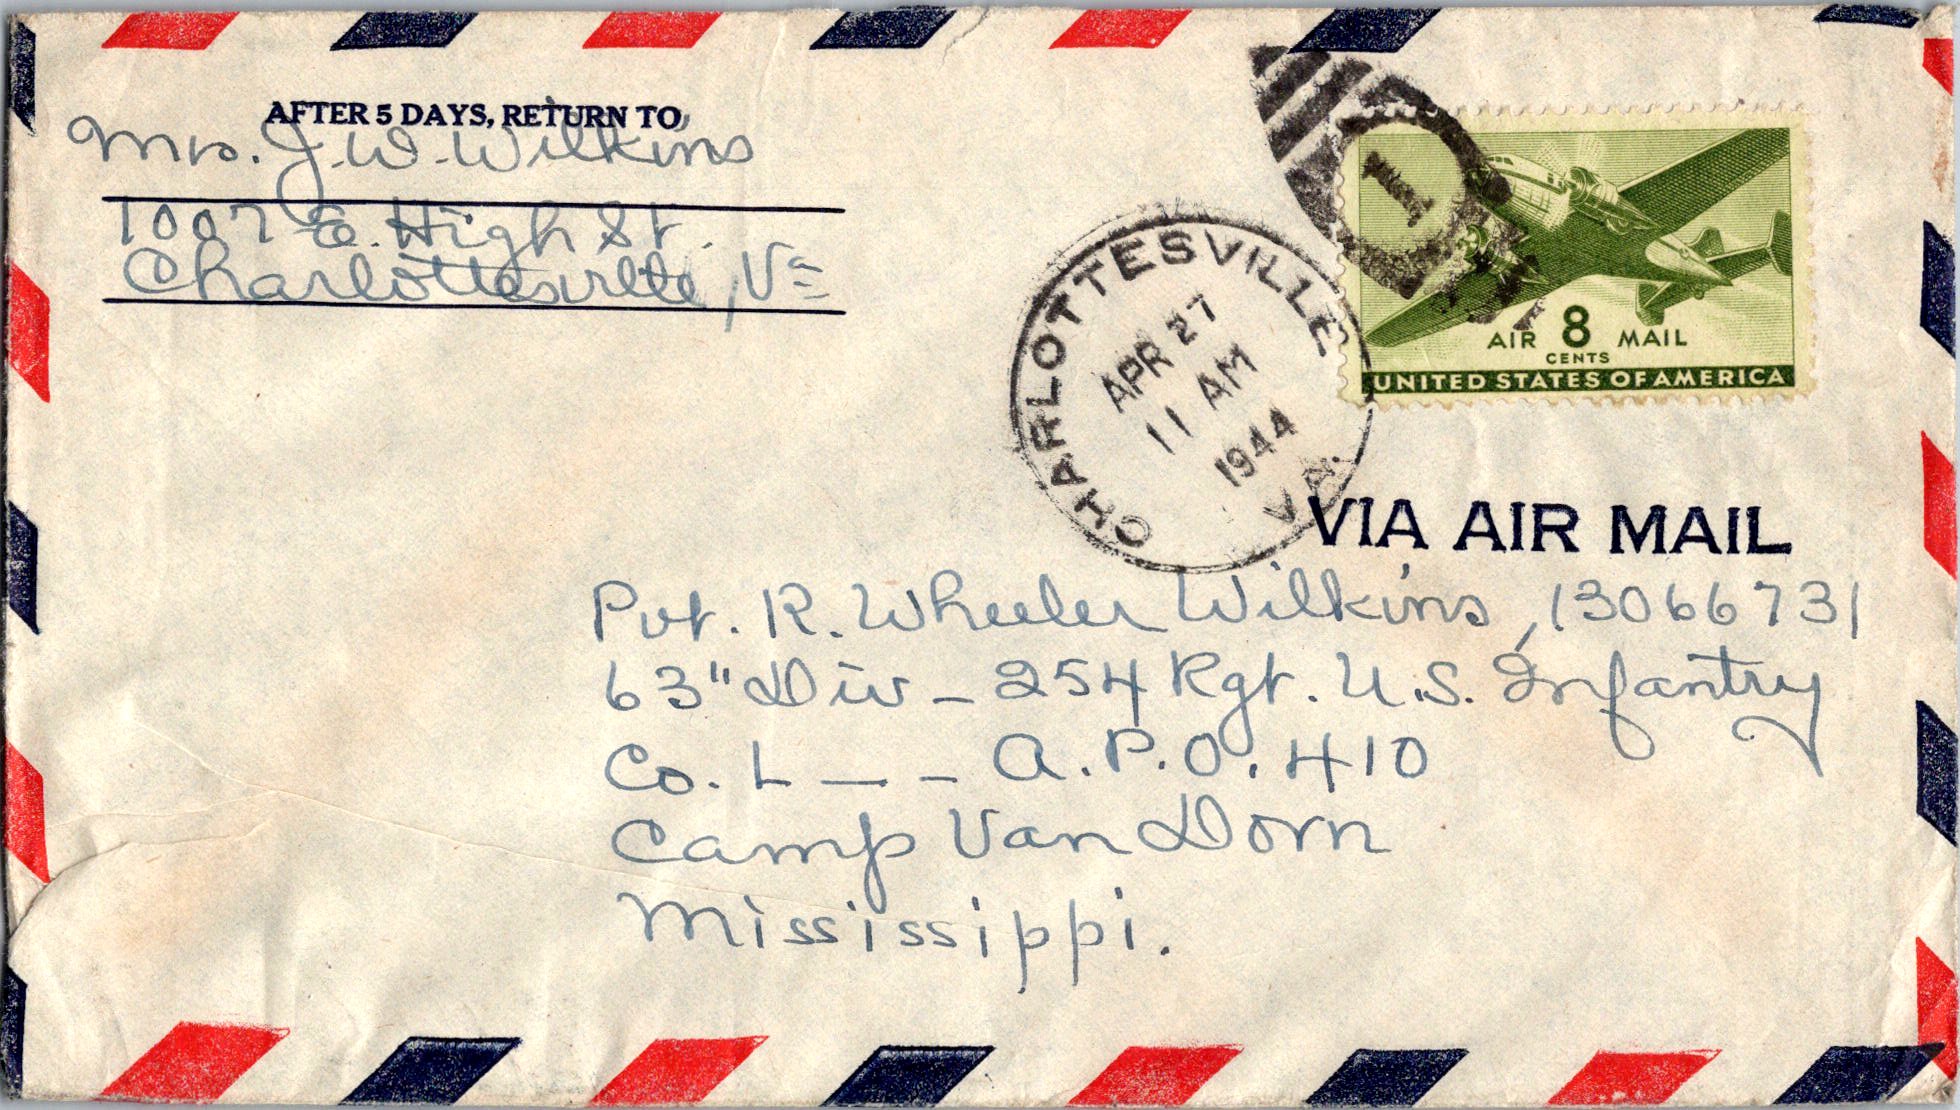 AFTER 5 DAYS, RETURN TO
Mrs. J. W. Wilkins
1007 E. High St.
Charlottesville, Va
CHARLOTTESVILLE
APR 27
11 AM
1944
VA.
1
AIR 8 MAIL
CENTS
UNITED STATES OF AMERICA
VIA AIR MAIL
Pvt. R. Wheeler Wilkins, 13066731
63" Div - 254 Rgt. U.S. Infantry
Co. L - - A.P.O. 410
Camp Van Dorn
Mississippi.